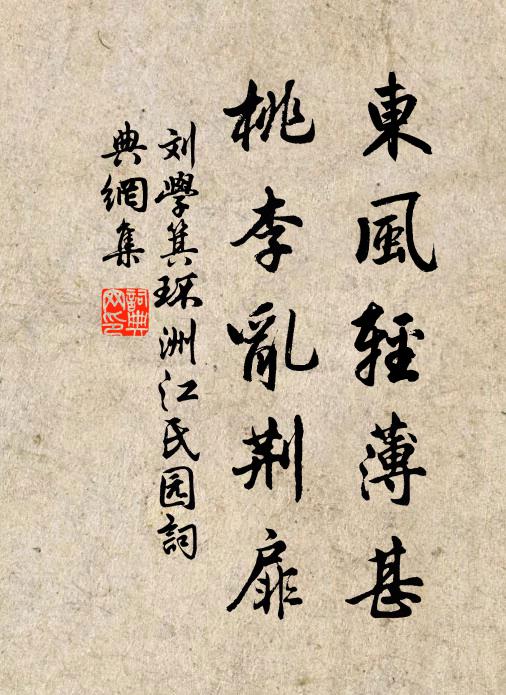 東風輕薄甚
桃李亂荆扉
刘學箕环洲江氏园詞
典網集
詞典
网印